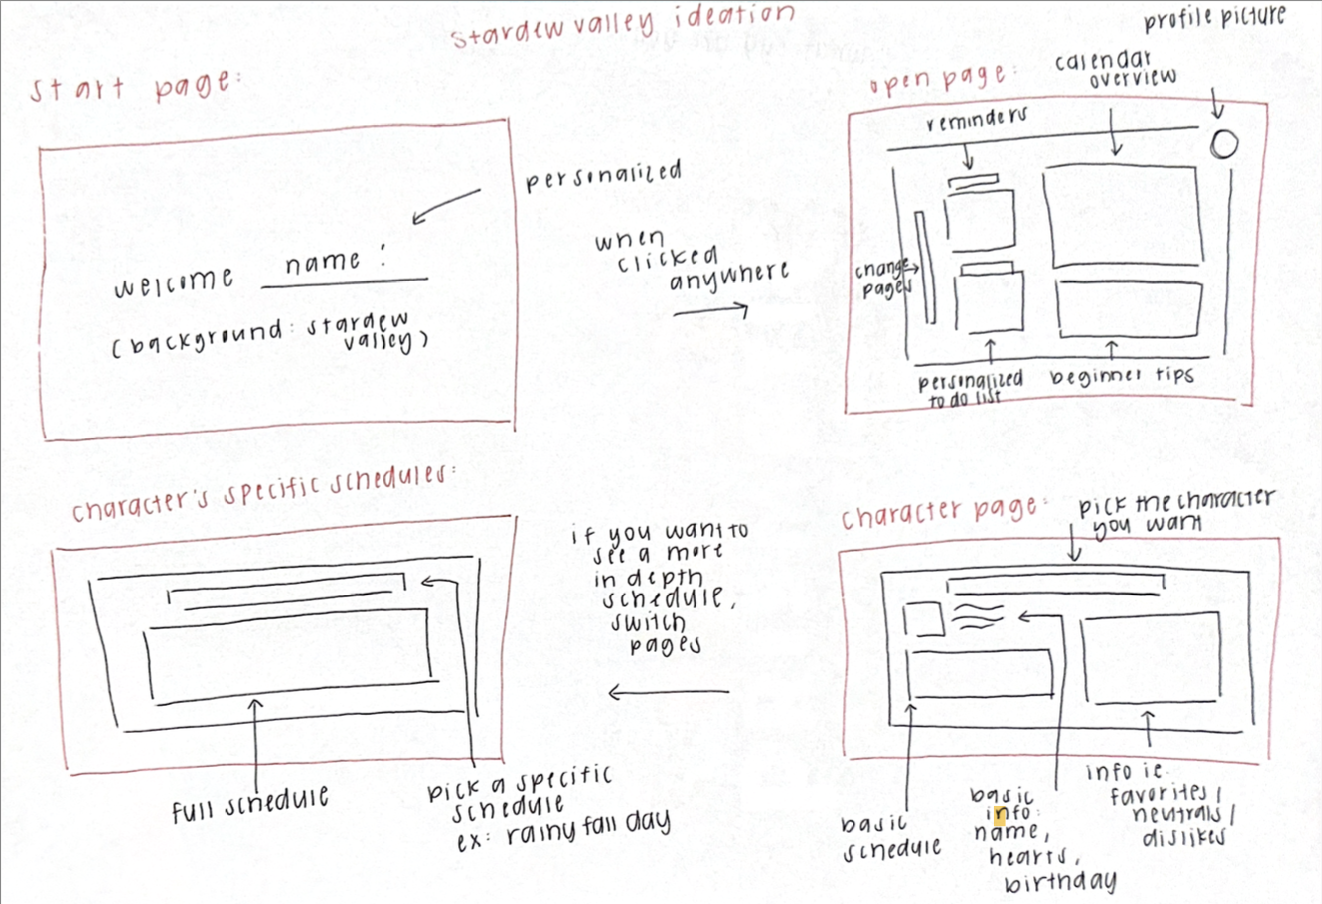 stardew valley ideation
start page:
personalized
welcome name :
(background: stardew
valley)
when
clicked
anywhere
open page:
profile picture
calendar
overview
reminders
change
pages
personalized
to do list
beginner tips
character's specific schedules:
full schedule
pick a specific
schedule
ex: rainy fall day
if you want to
see a more
in depth
schedule,
switch
pages
character page:
pick the character
you want
basic
schedule
basic
info:
name,
hearts,
birthday
info ie.
favorites/
neutrals/
dislikes